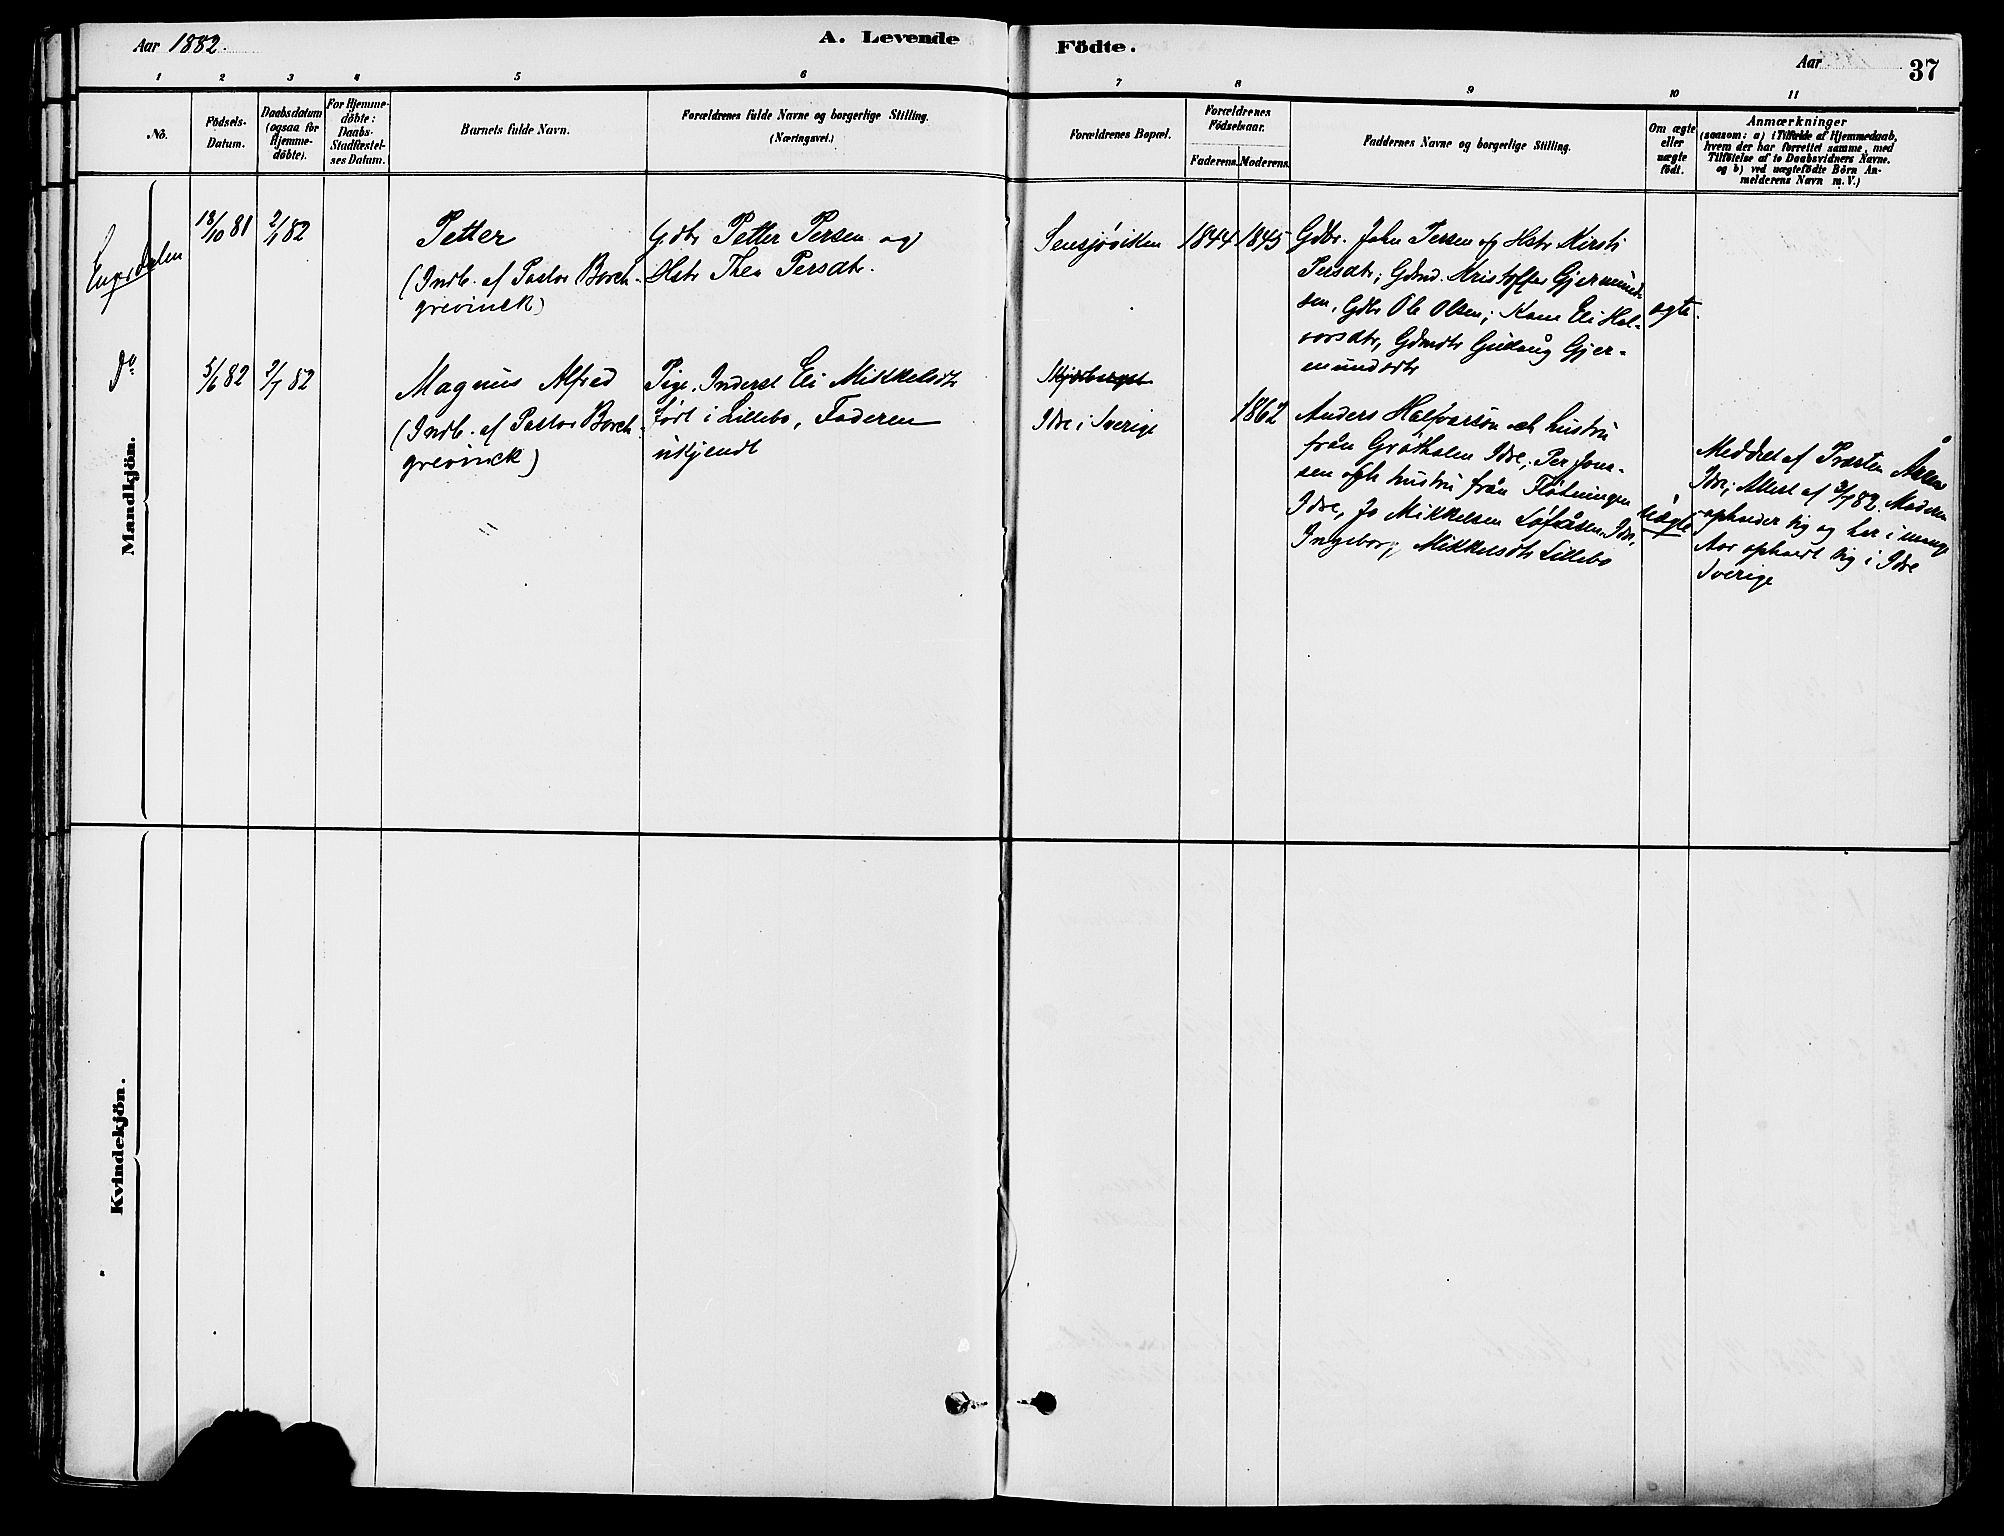 Aar 1882.
A. Levende
Födte.
Aar
37
1
2
3
4
5
6
7
8
9
10
11
No.
Födsels-
Datum.
Daabsdatum
(ogsaa for
Hjemme-
döbte).
For Hjemme-
döbte:
Daabs-
Stadfæstel-
ses Datum.
Barnets fulde Navn.
Forældrenes fulde Navne og borgerlige Stilling.
(Næringsvei.)
Forældrenes Bopæl.
Forældrenes
Födselsaar.
Faderens.
Moderens.
Faddernes Navne og borgerlige Stilling.
Om ægte
eller
uægte
födt.
Anmærkninger
(saasom: a) i Tilfælde af Hjemmedaab,
hvem der har forrettet samme, med
Tilföielse af to Daabsvidners Navne.
og b) ved uægtefödte Börn An-
melderens Navn m. V.)
Mandkjön.
Engerdalen
18/10 81
2/1 82
Petter
(Indb. af Pastor Borch-
grevinck)
Gdbr Petter Persen og
Hstr Thea Persdtr.
Sensjøvisten
1844
1845
Gdbr. John Persen og Hstr Kirsti
Persdtr; Gdmd. Kristoffer Gjermund-
sen, Gdbr Ole Olsen; Kone Eli Hal-
vorsdtr, Gdmdtr Gudaug Gjer-
mundsdtr
ægte.
do
5/6 82
2/7 82
Magnus Alfred
(Indb. af Pastor Borch-
grevinck)
Pige, Inderst Eli Mikkelsdtr
født i Lillebo, Faderen
ukjendt
Idre i Sverige
1862
Anders Halfvarson och hustru
från Grøthalen Idre, Per Jons-
sen och hustru från Fløtningen
Idre, Jo Mikkelsen Løfåsen, Idre,
Ingeborg Mikkelsdtr Lillebo
uægte
Meddelt af Præsten Åsen
Idre; Attest af 3/7 82. Moderen
opholder sig og har i mange
Aar opholdt sig i Idre
Sverige
Kvindekjön.